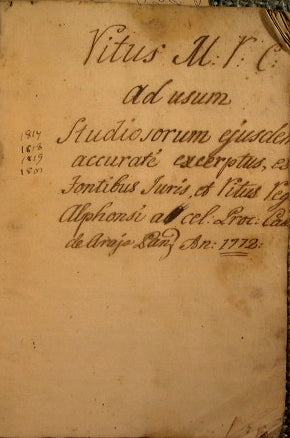 Vitus M. V. C.
Ad usum
Studiosorum ejusdem
accuraté excerptus, ex
Fontibus Juris, et Vitus Veg
Alphonsi a cel. Proc. Cas
de Arajo An: 1772.
1817
1818
1819